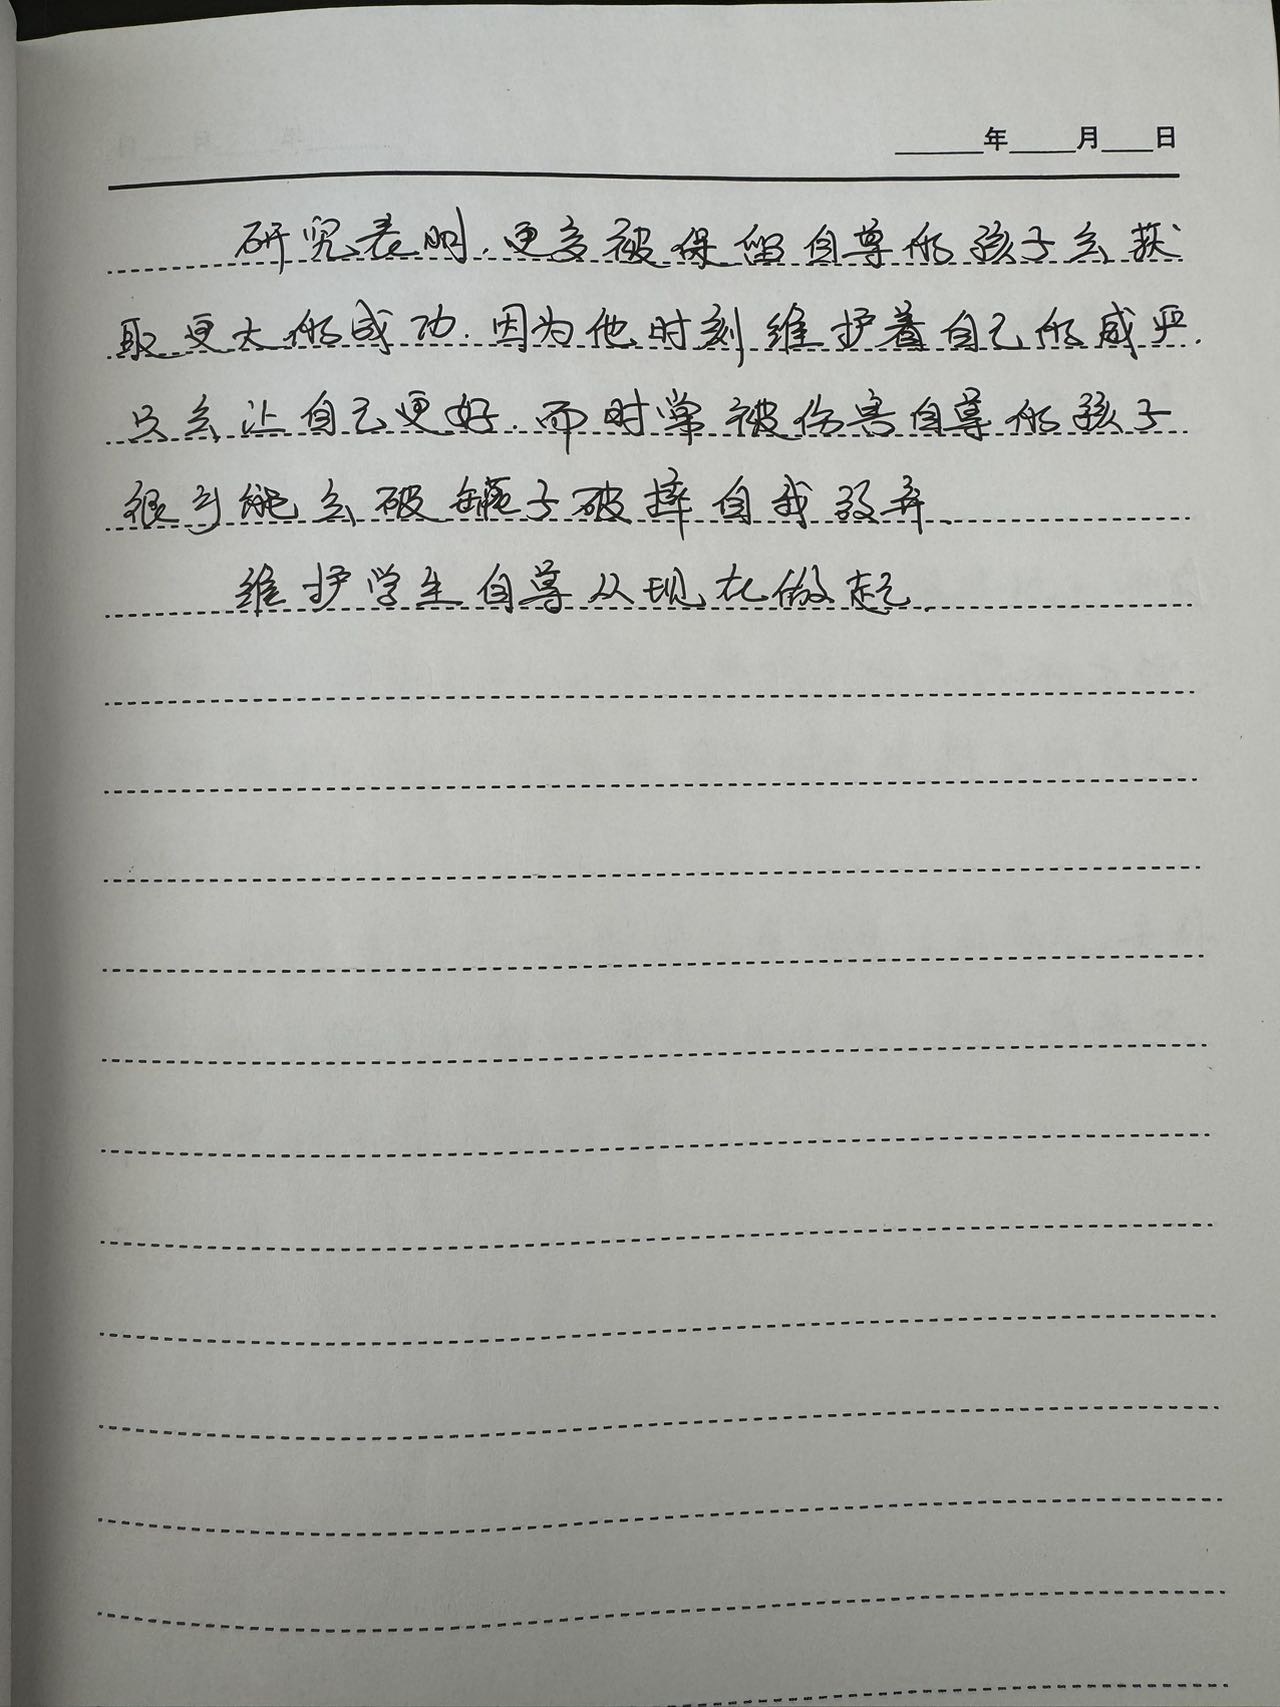 年 月 日
研究表明,更多被保留自尊的孩子会获
取更大的成功.因为他时刻维护着自己的威严.
只会让自己更好.而时常被伤害自尊的孩子
很可能会破罐子破摔自我放弃.
维护学生自尊从现在做起.